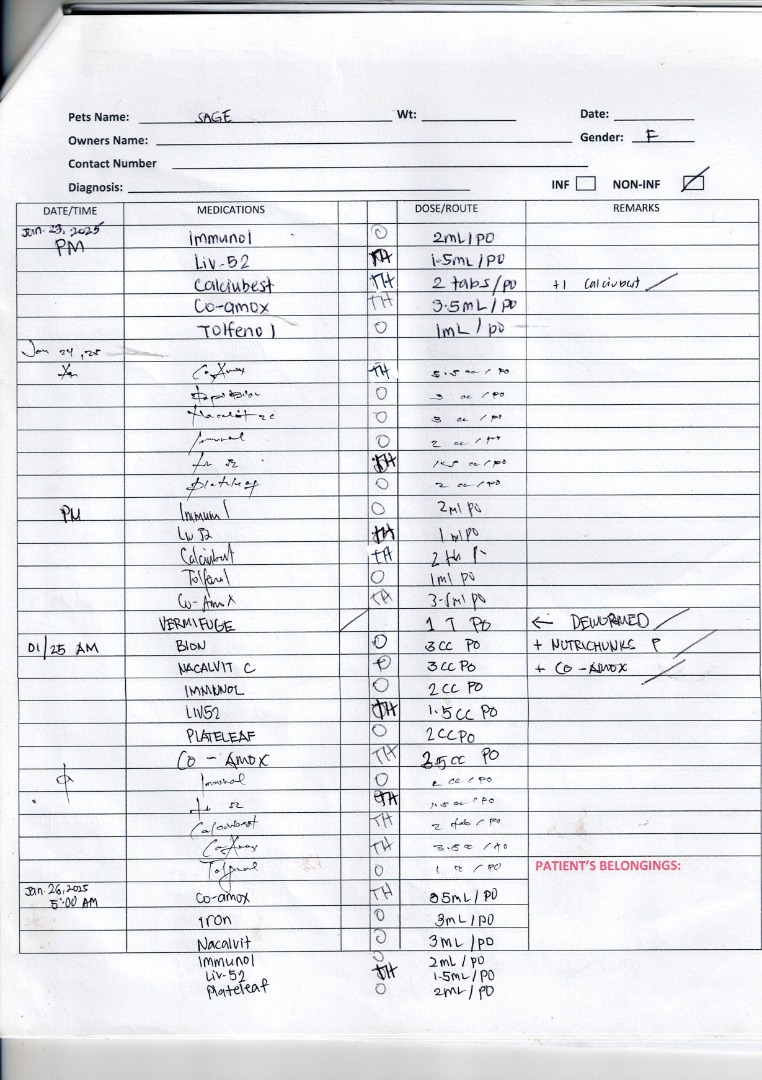 Pets Name: SAGE Wt: Date:
Owners Name: Gender: F
Contact Number
Diagnosis: INF NON-INF
DATE/TIME MEDICATIONS DOSE/ROUTE REMARKS
Jan. 23, 2025 PM Immunol O 2mL/PO
Liv-52 TH 1.5mL/PO
Calciubest TH 2 tabs/po +1 Calciubest
Co-amox TH 3.5mL/PO
Tolfenol O 1mL/po
Jan 24, 25
TH cc/PO
O 3 cc/PO
O 3 cc/PO
O 2 cc/
52 TH 1.5 cc/PO
Plateleaf O 2 cc/PO
PM Immunol O 2ml po
Liv 52 TH 1 ml po
Calciubest TH 2
Tolfenol O 1ml po
Co-Amox TH 3.5ml po
VERMIFUGE 1 T PO ← DEWORMED
01/25 AM BION O 3cc PO + NUTRICHUNKS P
NACALVIT C O 3cc PO + CO-AMOX
IMMUNOL O 2cc PO
LIV52 TH 1.5cc PO
PLATELEAF O 2CC PO
CO-AMOX TH 3.5cc PO
Immunol O 2 cc/PO
52 TH 1.5 cc/PO
Calciubest TH 2 tab/PO
TH 3.5
O 1 PATIENT'S BELONGINGS:
Jan. 26, 2025 5:00 AM Co-amox TH 35mL/PO
Iron O 3mL/PO
Nacalvit O 3mL/PO
Immunol O 2mL/PO
Liv-52 TH 1.5mL/PO
Plateleaf O 2mL/PO